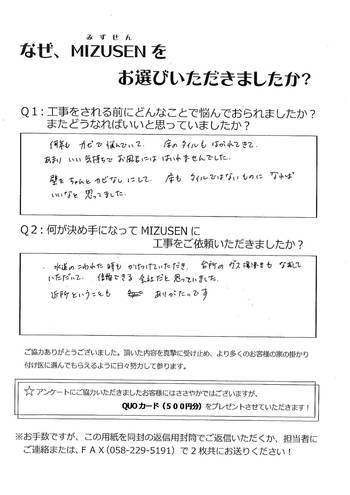 みずせん
なぜ、MIZUSENを
お選びいただきましたか?
Q1:工事をされる前にどんなことで悩んでおられましたか?
またどうなればいいと思っていましたか?
何年も カビで悩んでいて、 床のタイルもはがれてきて、
あまり いい気持ちでお風呂には はいれませんでした。
壁をちゃんとカビなしにして、床も タイルではないものに なれば
いいなと 思ってました。
Q2:何が決め手になってMIZUSENに
工事をご依頼いただきましたか?
・水道のこわれた時も かけつけていただき、台所の
いただいて、信頼できる 会社だと思っていました。
近所ということも ありがたいです
ご協力ありがとうございました。頂いた内容を真摯に受け止め、より多くのお客様の家の掛かり
付け医に選んでもらえるように日々努力して参ります。
☆アンケートにご協力いただきましたお客様にはささやかではございますが、
QUOカード(500円分)をプレゼントさせていただきます!
※お手数ですが、この用紙を同封の返信用封筒でご返信いただくか、担当者に
ご連絡または、FAX(058-229-5191)で2枚共にお送りください!